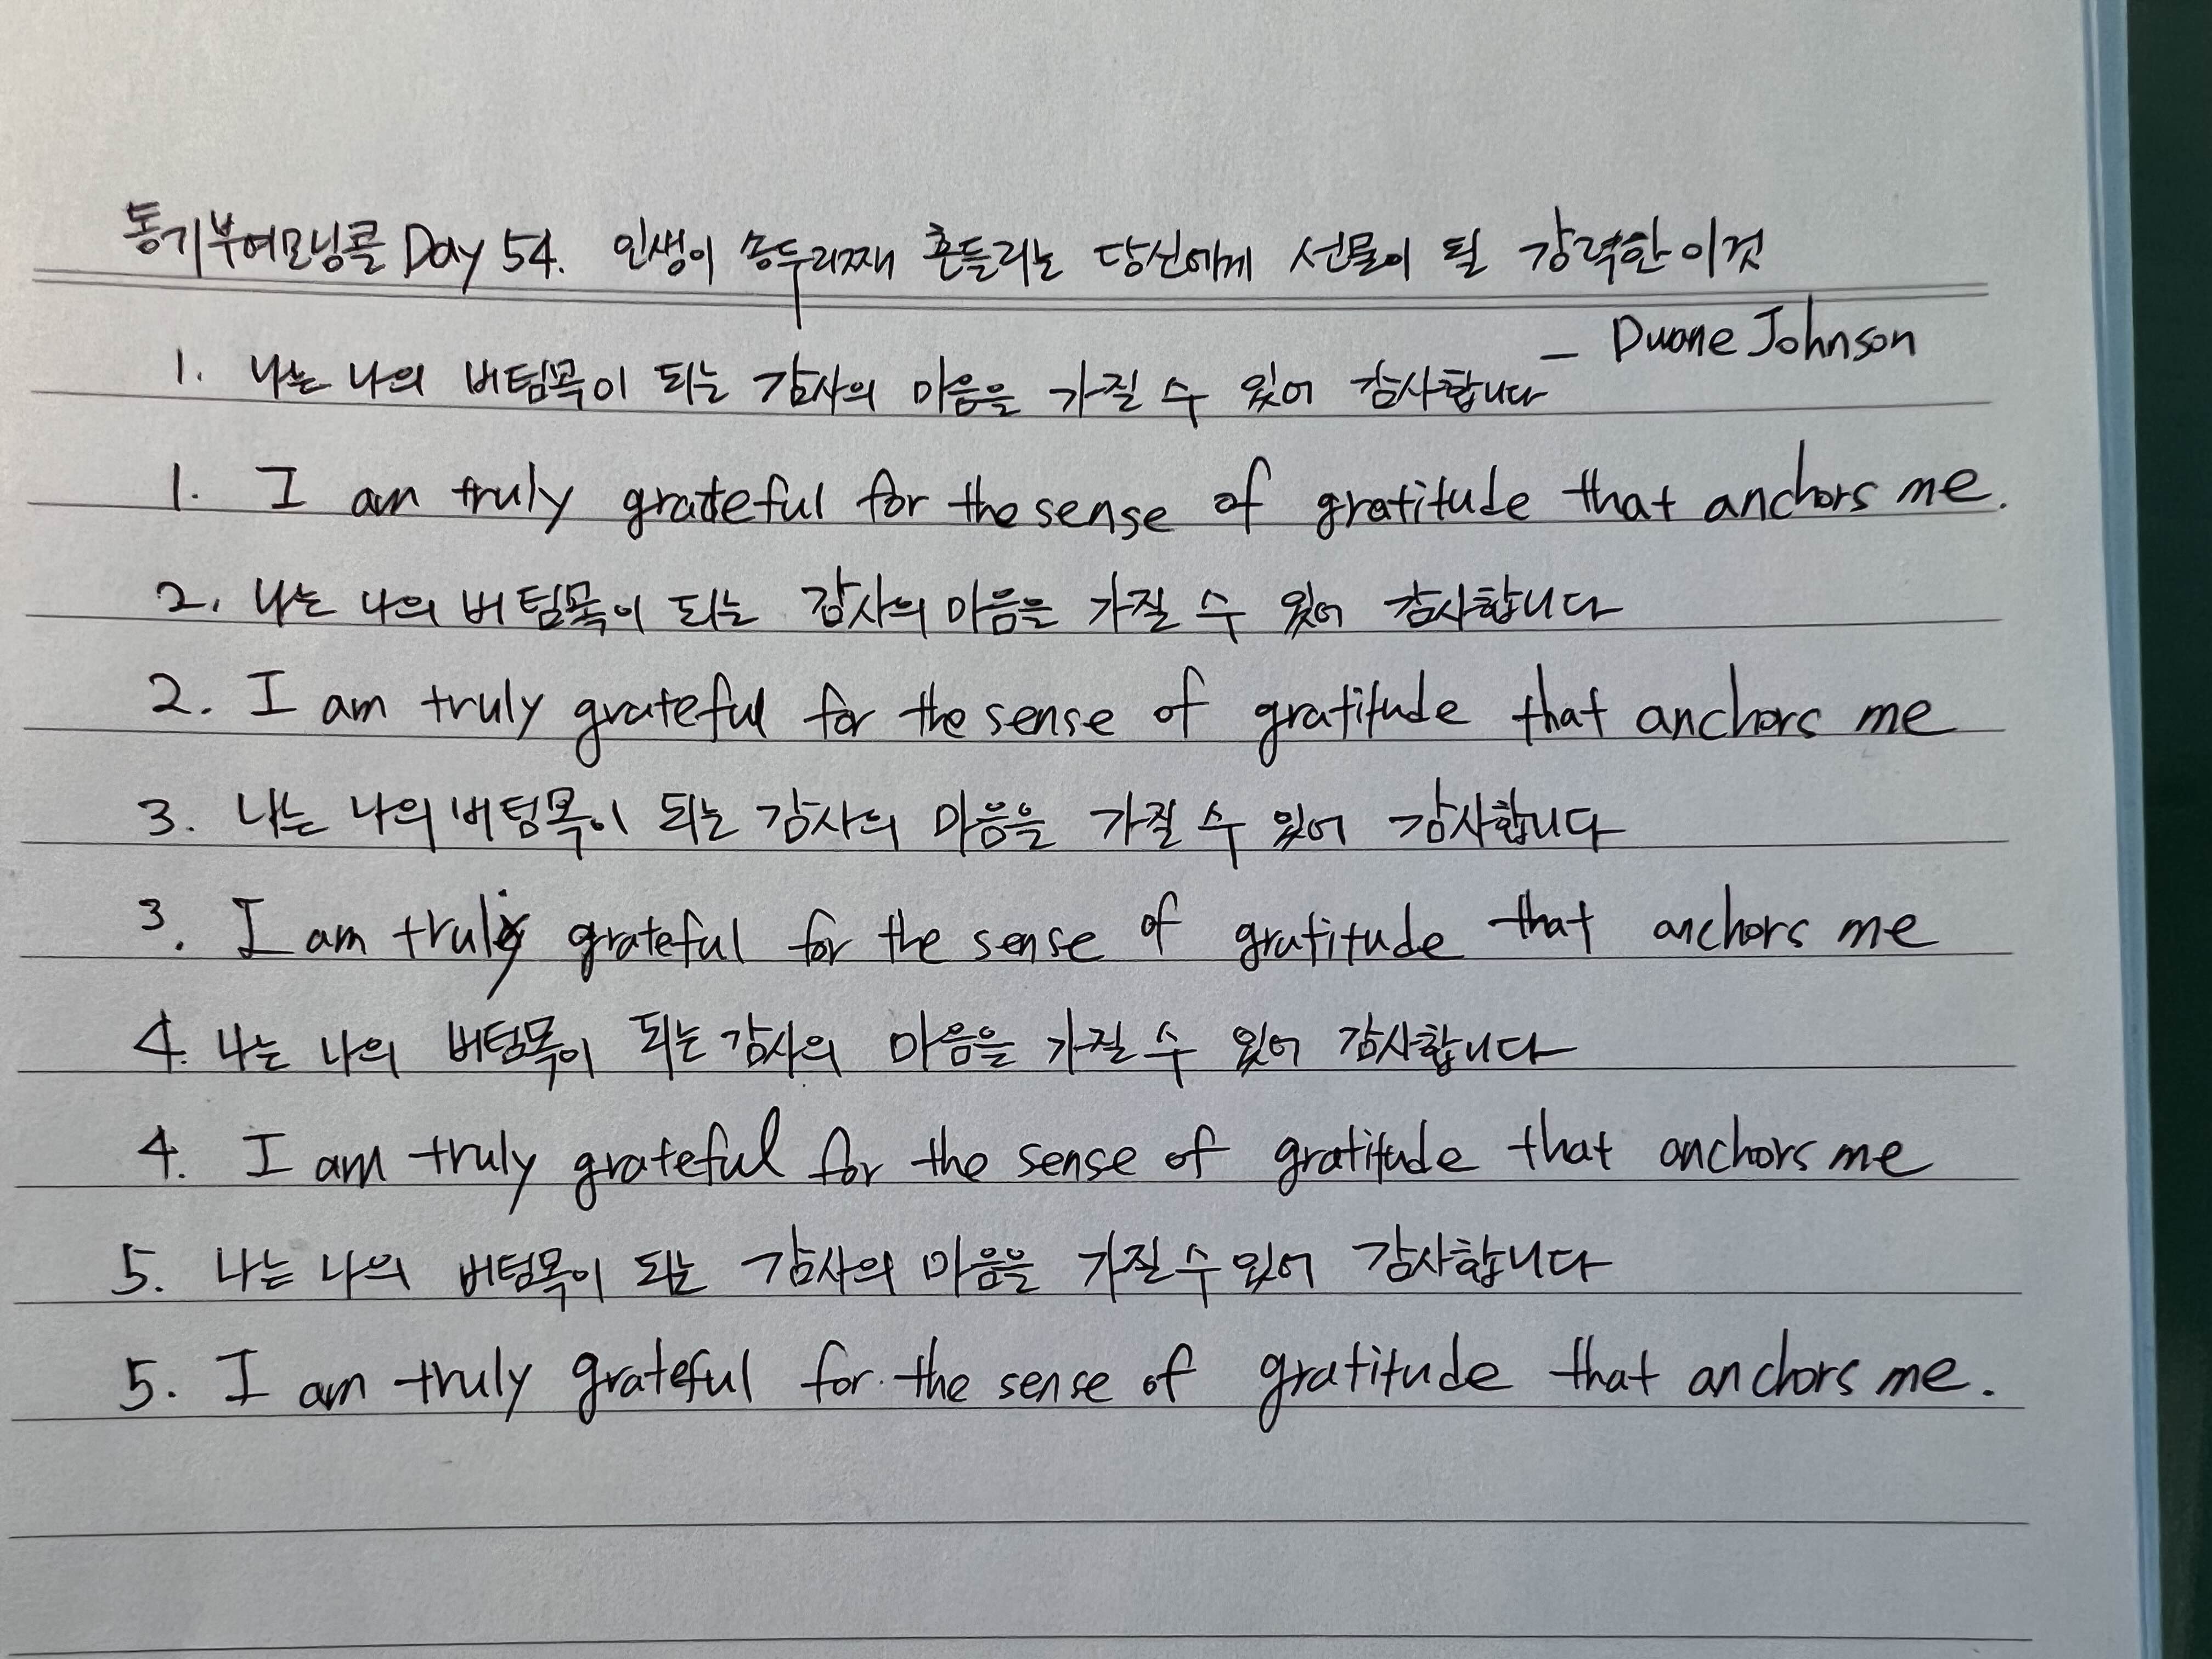 동기부여모닝콜 Day 54. 인생이 송두리째 흔들리는 당신에게 선물이 될 강력한 이것
- Duane Johnson
1. 나는 나의 버팀목이 되는 감사의 마음을 가질 수 있어 감사합니다
1. I am truly grateful for the sense of gratitude that anchors me.
2. 나는 나의 버팀목이 되는 감사의 마음을 가질 수 있어 감사합니다
2. I am truly grateful for the sense of gratitude that anchors me
3. 나는 나의 버팀목이 되는 감사의 마음을 가질 수 있어 감사합니다
3. I am truly grateful for the sense of gratitude that anchors me
4. 나는 나의 버팀목이 되는 감사의 마음을 가질 수 있어 감사합니다
4. I am truly grateful for the sense of gratitude that anchors me
5. 나는 나의 버팀목이 되는 감사의 마음을 가질 수 있어 감사합니다
5. I am truly grateful for the sense of gratitude that anchors me.